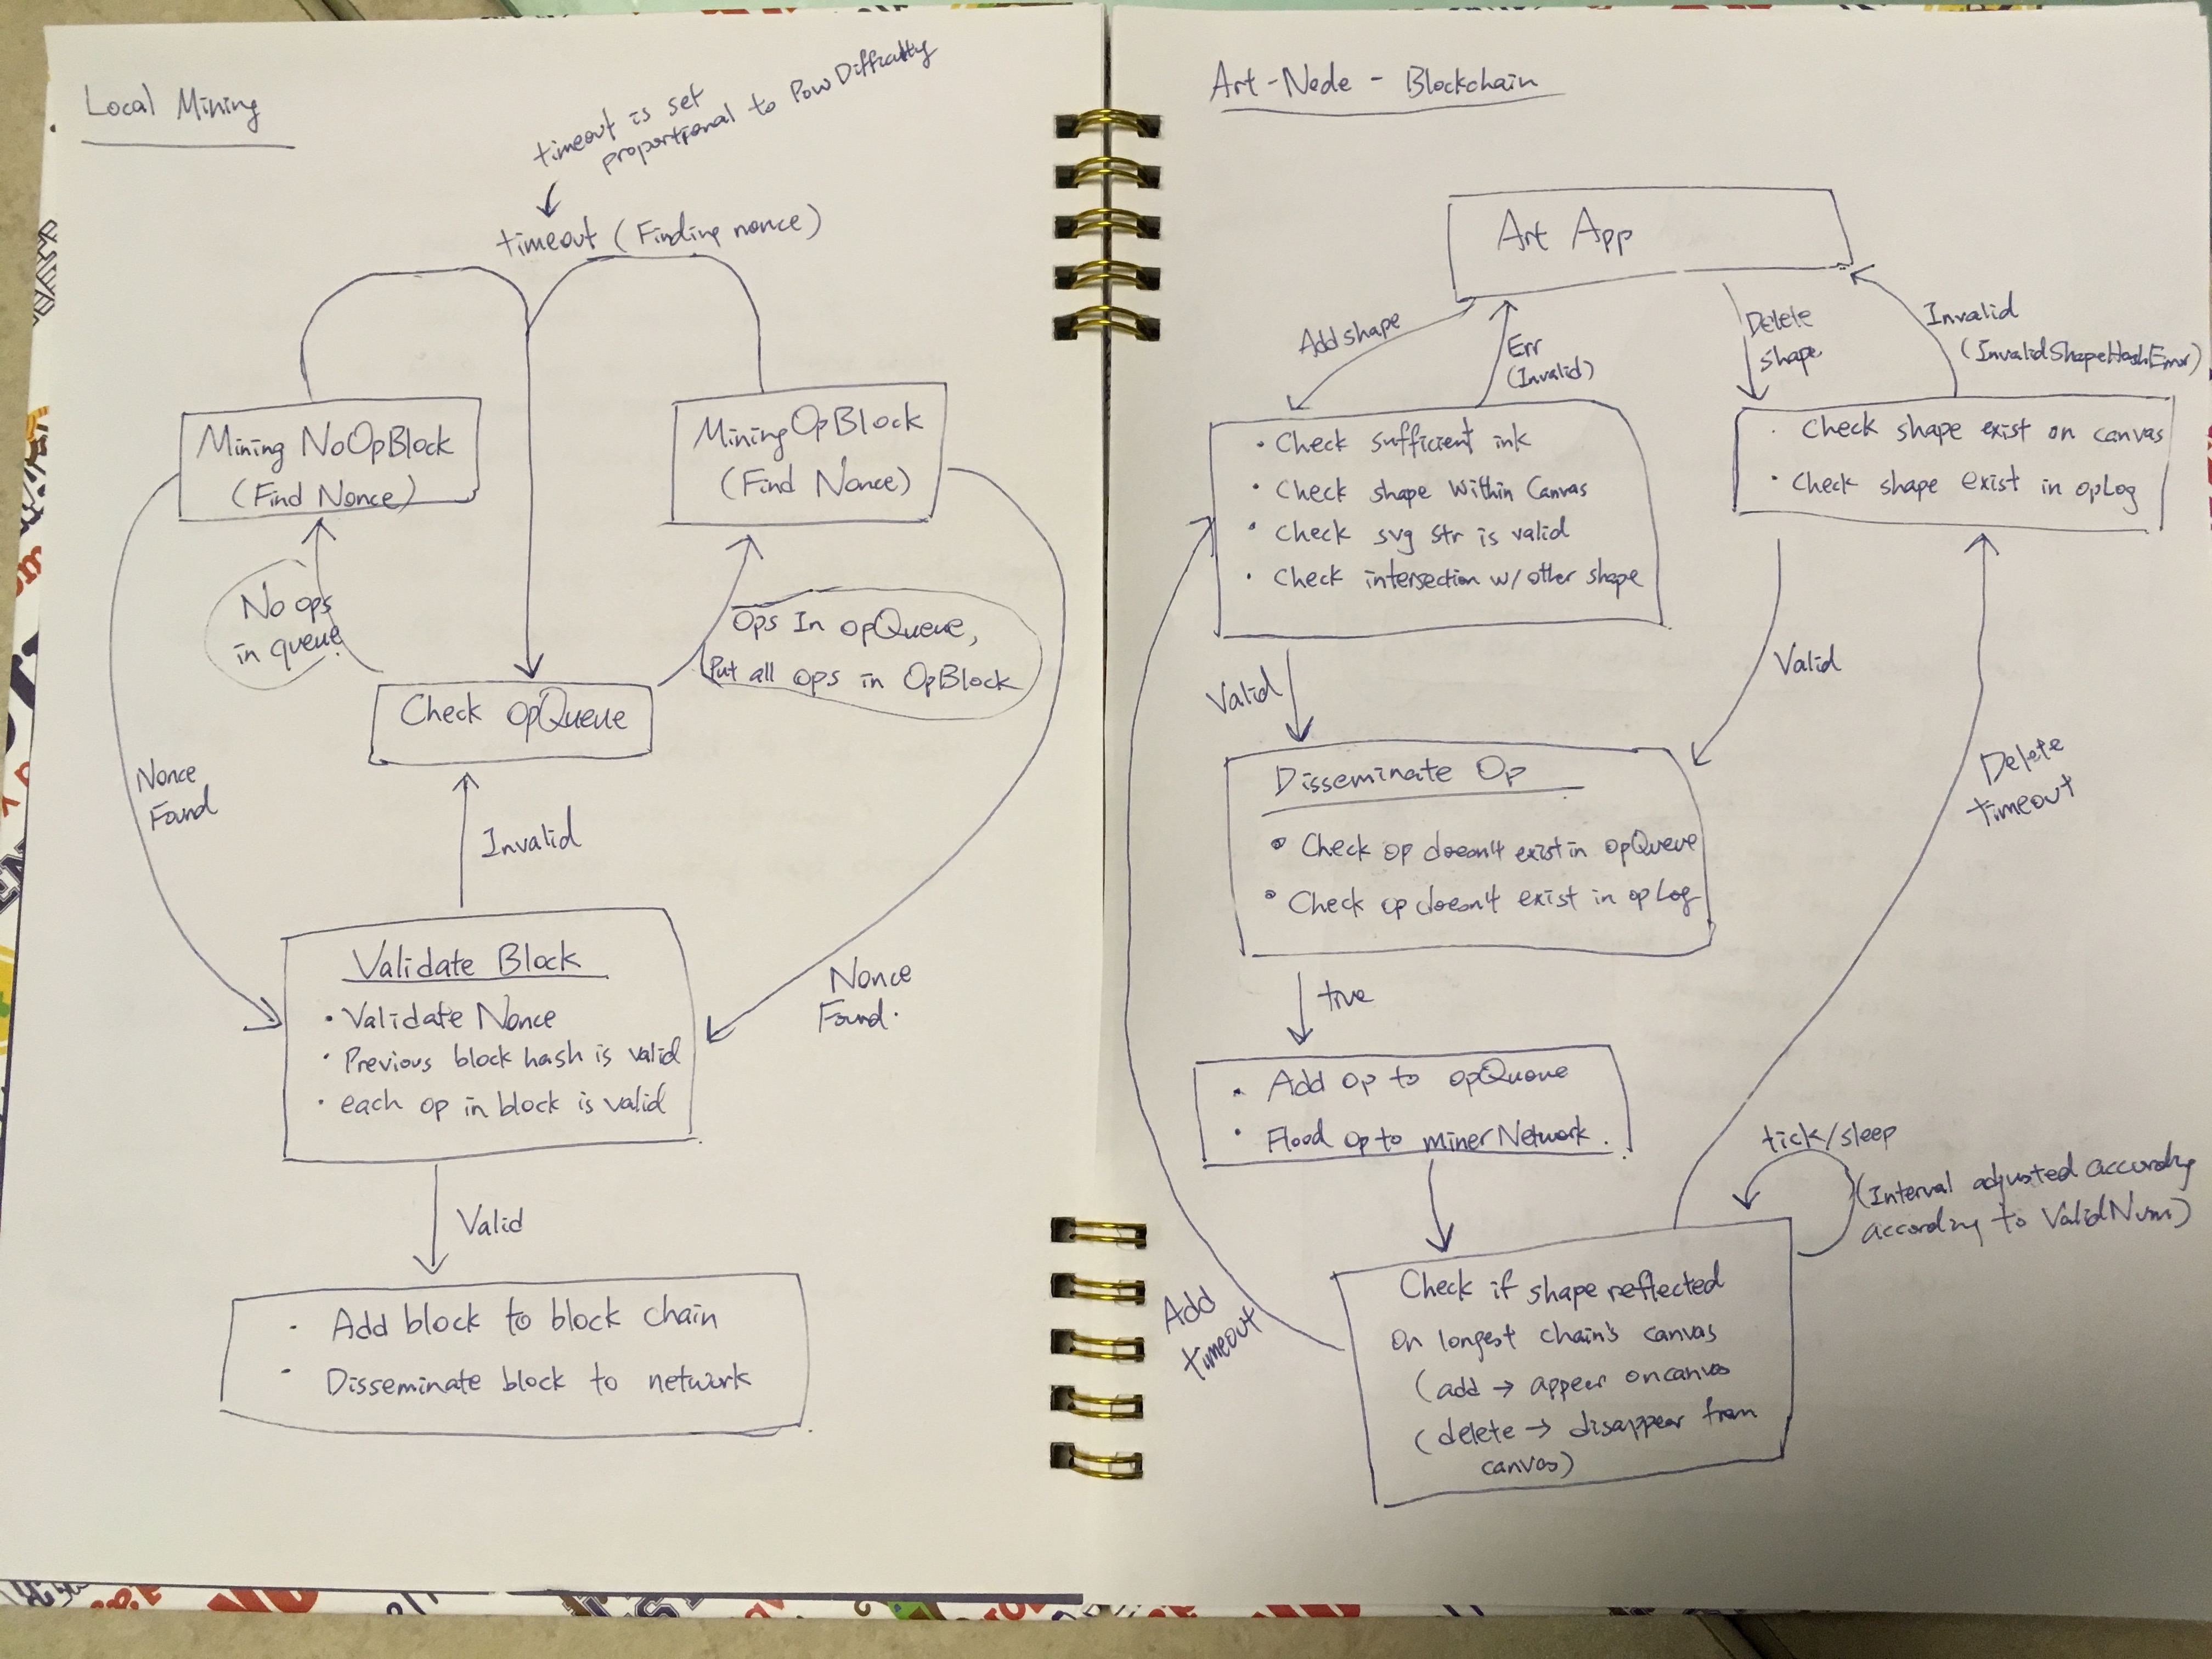 Local Mining
timeout is set
proportional to PowDifficulty
timeout (Finding nonce)
Mining NoOpBlock
(Find Nonce)
Mining OpBlock
(Find Nonce)
No ops
in queue
Ops In opQueue,
Put all ops in OpBlock
Check opQueue
Nonce
Found
Invalid
Validate Block
• Validate Nonce
• Previous block hash is valid
• each op in block is valid
Nonce
Found.
Valid
• Add block to block chain
• Disseminate block to network
Art-Node - Blockchain
Art App
Add shape
Err
(Invalid)
Delete
shape
Invalid
(InvalidShapeHashError)
• Check sufficient ink
• Check shape Within Canvas
• Check svg str is valid
• Check intersection w/ other shape
• Check shape exist on canvas
• Check shape exist in opLog
Valid
Valid
Disseminate Op
• Check op doesn't exist in opQueue
• Check op doesn't exist in opLog
Delete
timeout
true
• Add op to opQueue
• Flood op to minerNetwork.
tick/sleep
(Interval adjusted according
according to ValidNum)
Add
timeout
Check if shape reflected
on longest chain's canvas
(add → appear on canvas
(delete → disappear from
canvas)